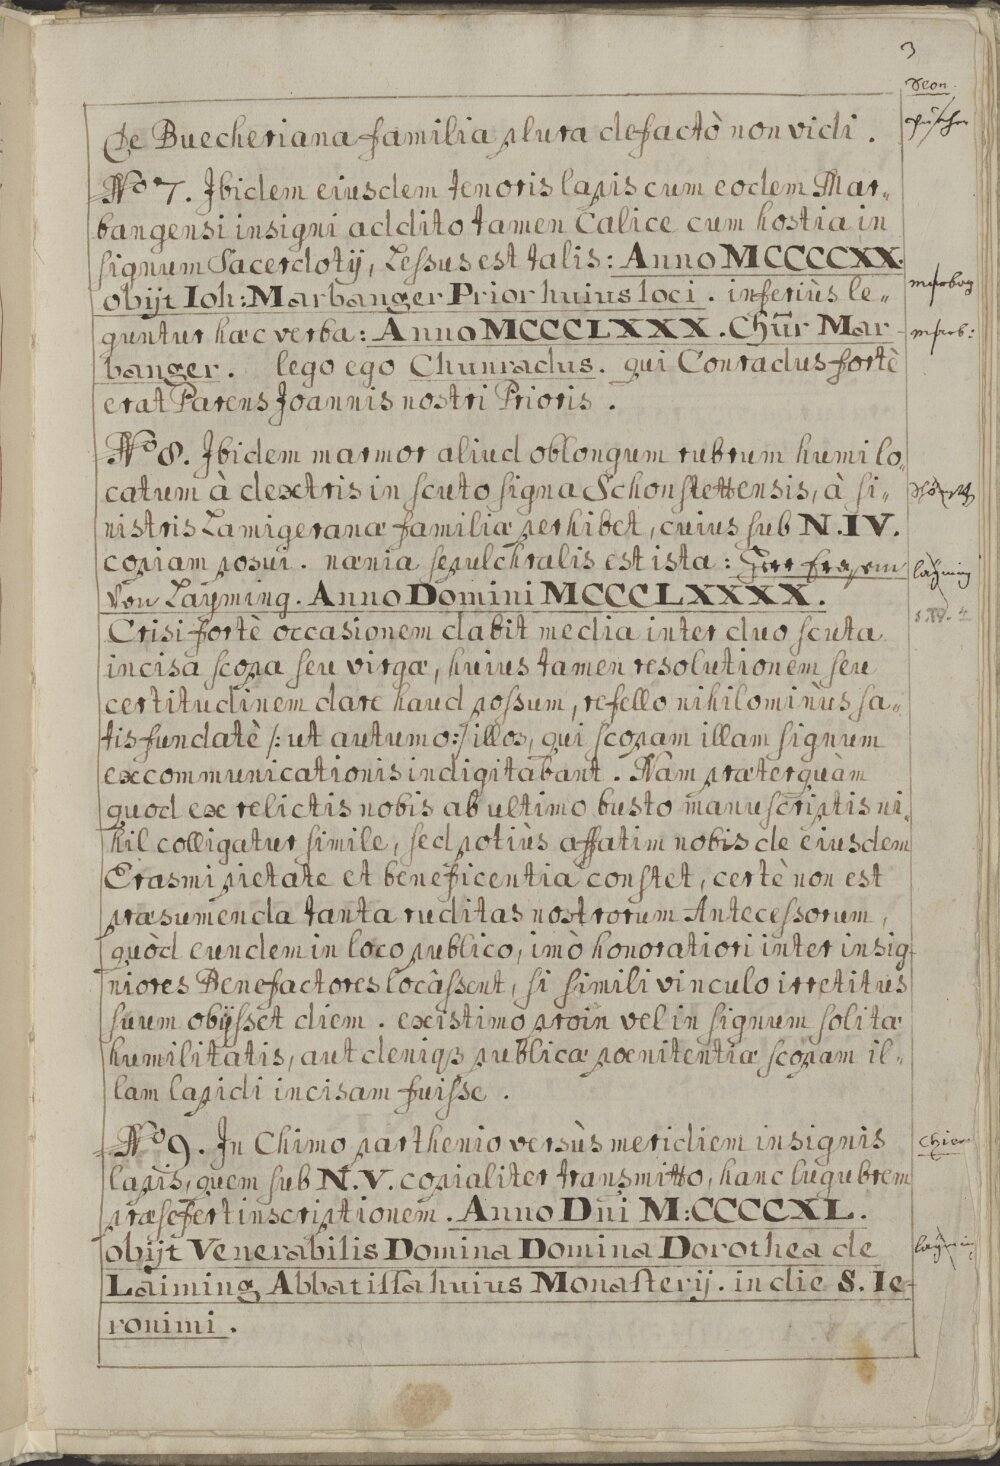 3
Seon.
De Buecheriana familia plura defactò non vidi.
Nº 7. Ibidem eiusdem tenoris lapis cum eodem Mar„
bangensi insigni addito tamen Calice cum hostia in
signum Sacerdotij, Lessus est talis: Anno MCCCCXX.
obijt Ioh: Marbanger Prior huius loci. inferiùs le„
guntur hæc verba: Anno MCCCLXXX. Chūr Mar-
marb:
banger. lego ego Chunradus. qui Conradus fortè
erat Parens Joannis nostri Prioris.
Nº 8. Ibidem marmor aliud oblongum rubrum humi lo„
catum à dextris in scuto signa Schonstettensis, à si„
nistris Lamigeranæ familiæ perhibet, cuius sub N. IV.
copiam posui. nænia sepulchralis est ista: Herr Erasem
layming
Von Layming. Anno Domini MCCCLXXXX.
Crisi fortè occasionem dabit media inter duo scuta
incisa scopa seu virga, huius tamen resolutionem seu
certitudinem dare haud possum, refello nihilominùs sa„
tis fundatè /: ut autumo:/ illos, qui scopam illam signum
excommunicationis indigitabant. Nam præterquàm
quod ex relictis nobis ab ultimo busto manuscriptis ni„
hil colligatur simile, sed potiùs affatim nobis de eiusdem
Erasmi pietate et beneficentia constet, certè non est
præsumenda tanta ruditas nostrorum Antecessorum,
quòd eundem in loco publico, imò honoratiori inter insig
niores Benefactores locâssent, si simili vinculo irretitus
suum obijsset diem. existimo proin vel in signum solitæ
humilitatis, aut deniqȝ publicæ pœnitentiæ scopam il„
lam lapidi incisam fuisse.
Nº 9. In Chimo parthenio versùs meridiem insignis
Chiem
lapis, quem sub N. V. copialiter transmitto, hanc lugubrem
præsefert inscriptionem. Anno Dni M:CCCCXL.
obijt Venerabilis Domina Domina Dorothea de
Laiming Abbatissa huius Monasterij. in die S. Ie-
ronimi.